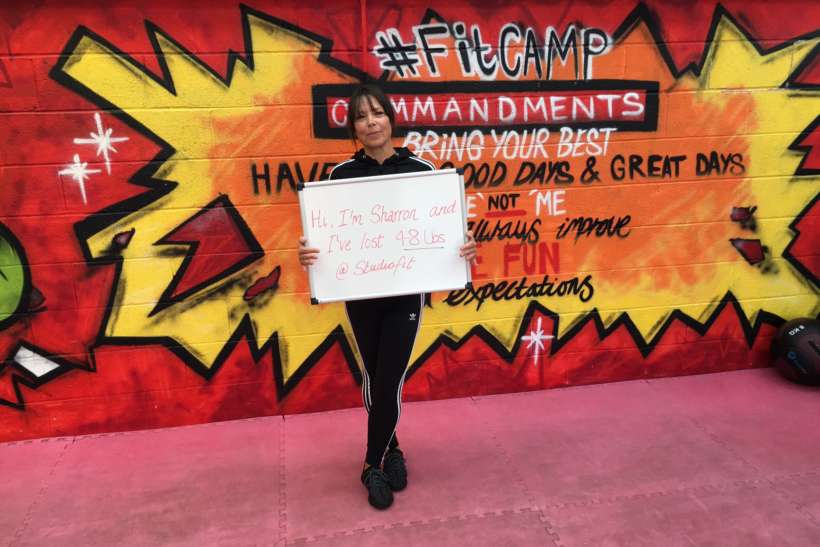 #FitCAMP
COMMANDMENTS
BRING YOUR BEST
HAVE GOOD DAYS & GREAT DAYS
'NOT 'ME
always improve
FUN
expectations
Hi, I'm Sharron and
I've lost 4.8 lbs
@ Studiofit